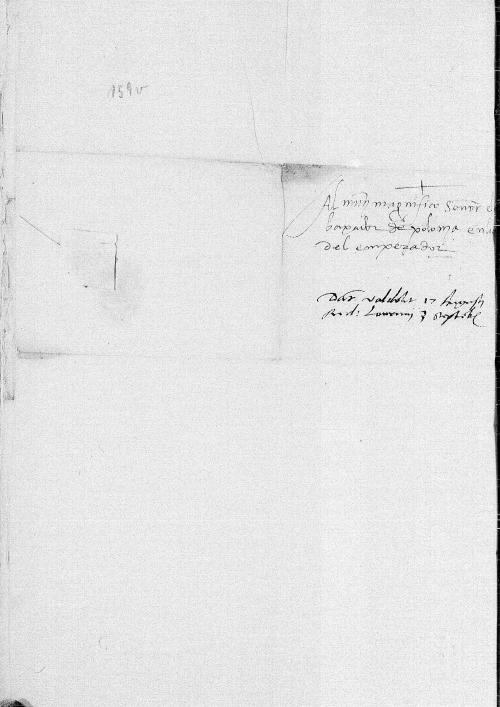 159v
Al muy magnifico Señor e
baxador de polonia en la
del emperador
Dat valdolit 17 Augusti
Red: Lovanii 3 septebr